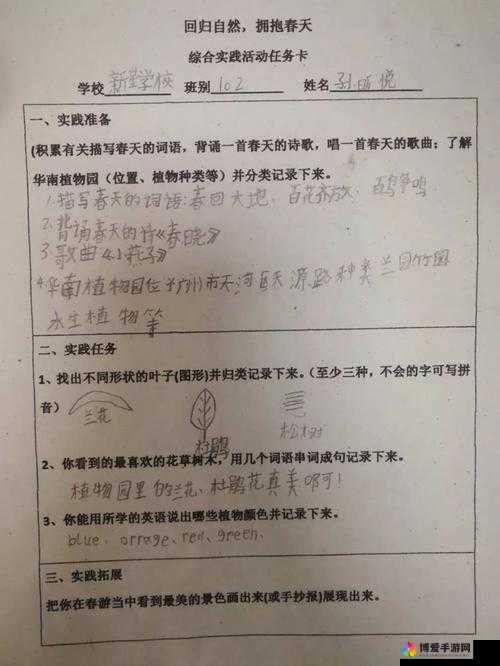 回归自然，拥抱春天
综合实践活动任务卡
学校 新星学校 班别 102 姓名 孙 悦
一、实践准备
(积累有关描写春天的词语，背诵一首春天的诗歌，唱一首春天的歌曲；了解
华南植物园（位置、植物种类等）并分类记录下来。
1.描写春天的词语:春回大地、百花齐放、百鸟争鸣
2.背诵春天的诗《春晓》
3.歌曲《小燕子》
4.华南植物园位于广州市天河区天源路种类兰园竹园
水生植物等
二、实践任务
1、找出不同形状的叶子(图形)并归类记录下来。（至少三种，不会的字可写拼
音）
兰花 杜鹃 松树
2、你看到的最喜欢的花草树木，用几个词语串词成句记录下来。
植物园里的兰花、杜鹃花真美啊!
3、你能用所学的英语说出哪些植物颜色并记录下来。
blue、orrage、red、green、
三、实践拓展
把你在春游当中看到最美的景色画出来(或手抄报)展现出来。
博爱手游网